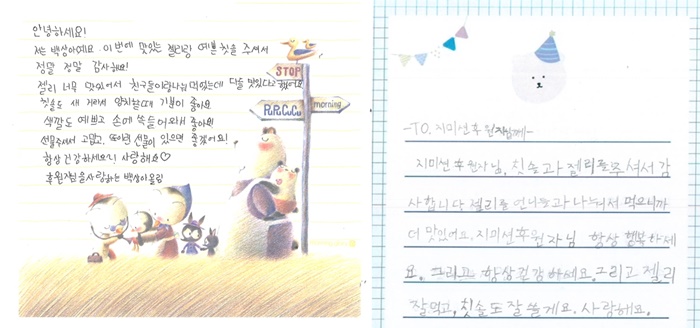 안녕하세요!
저는 백상아예요. 이번에 맛있는 젤리랑 예쁜 칫솔 주셔서
정말 정말 감사해요!
젤리 너무 맛있어서 친구들이랑 나눠먹었는데 다들 맛있다고 했어요
칫솔도 새 거라서 양치할때 기분이 좋아요
색깔도 예쁘고 손에 쏙 들어와서 좋아요!
선물주셔서 고맙고, 또 이런 선물이 있으면 좋겠어요!
항상 건강하세요! 사랑해요♡
후원자님을 사랑하는 백상아 올림
STOP
PoRoCoCo
morning
-TO. 지미션 후원자님께-
지미션 후원자님, 칫솔과 젤리를 주셔서 감
사합니다 젤리를 언니들과 나눠서 먹으니까
더 맛있어요. 지미션후원자님 항상 행복하세
요. 그리고 항상건강하세요. 그리고 젤리
잘먹고, 칫솔도 잘 쓸게요. 사랑해요.